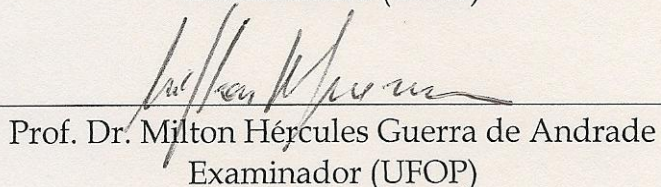 Prof. Dr. Milton Hércules Guerra de Andrade
Examinador (UFOP)